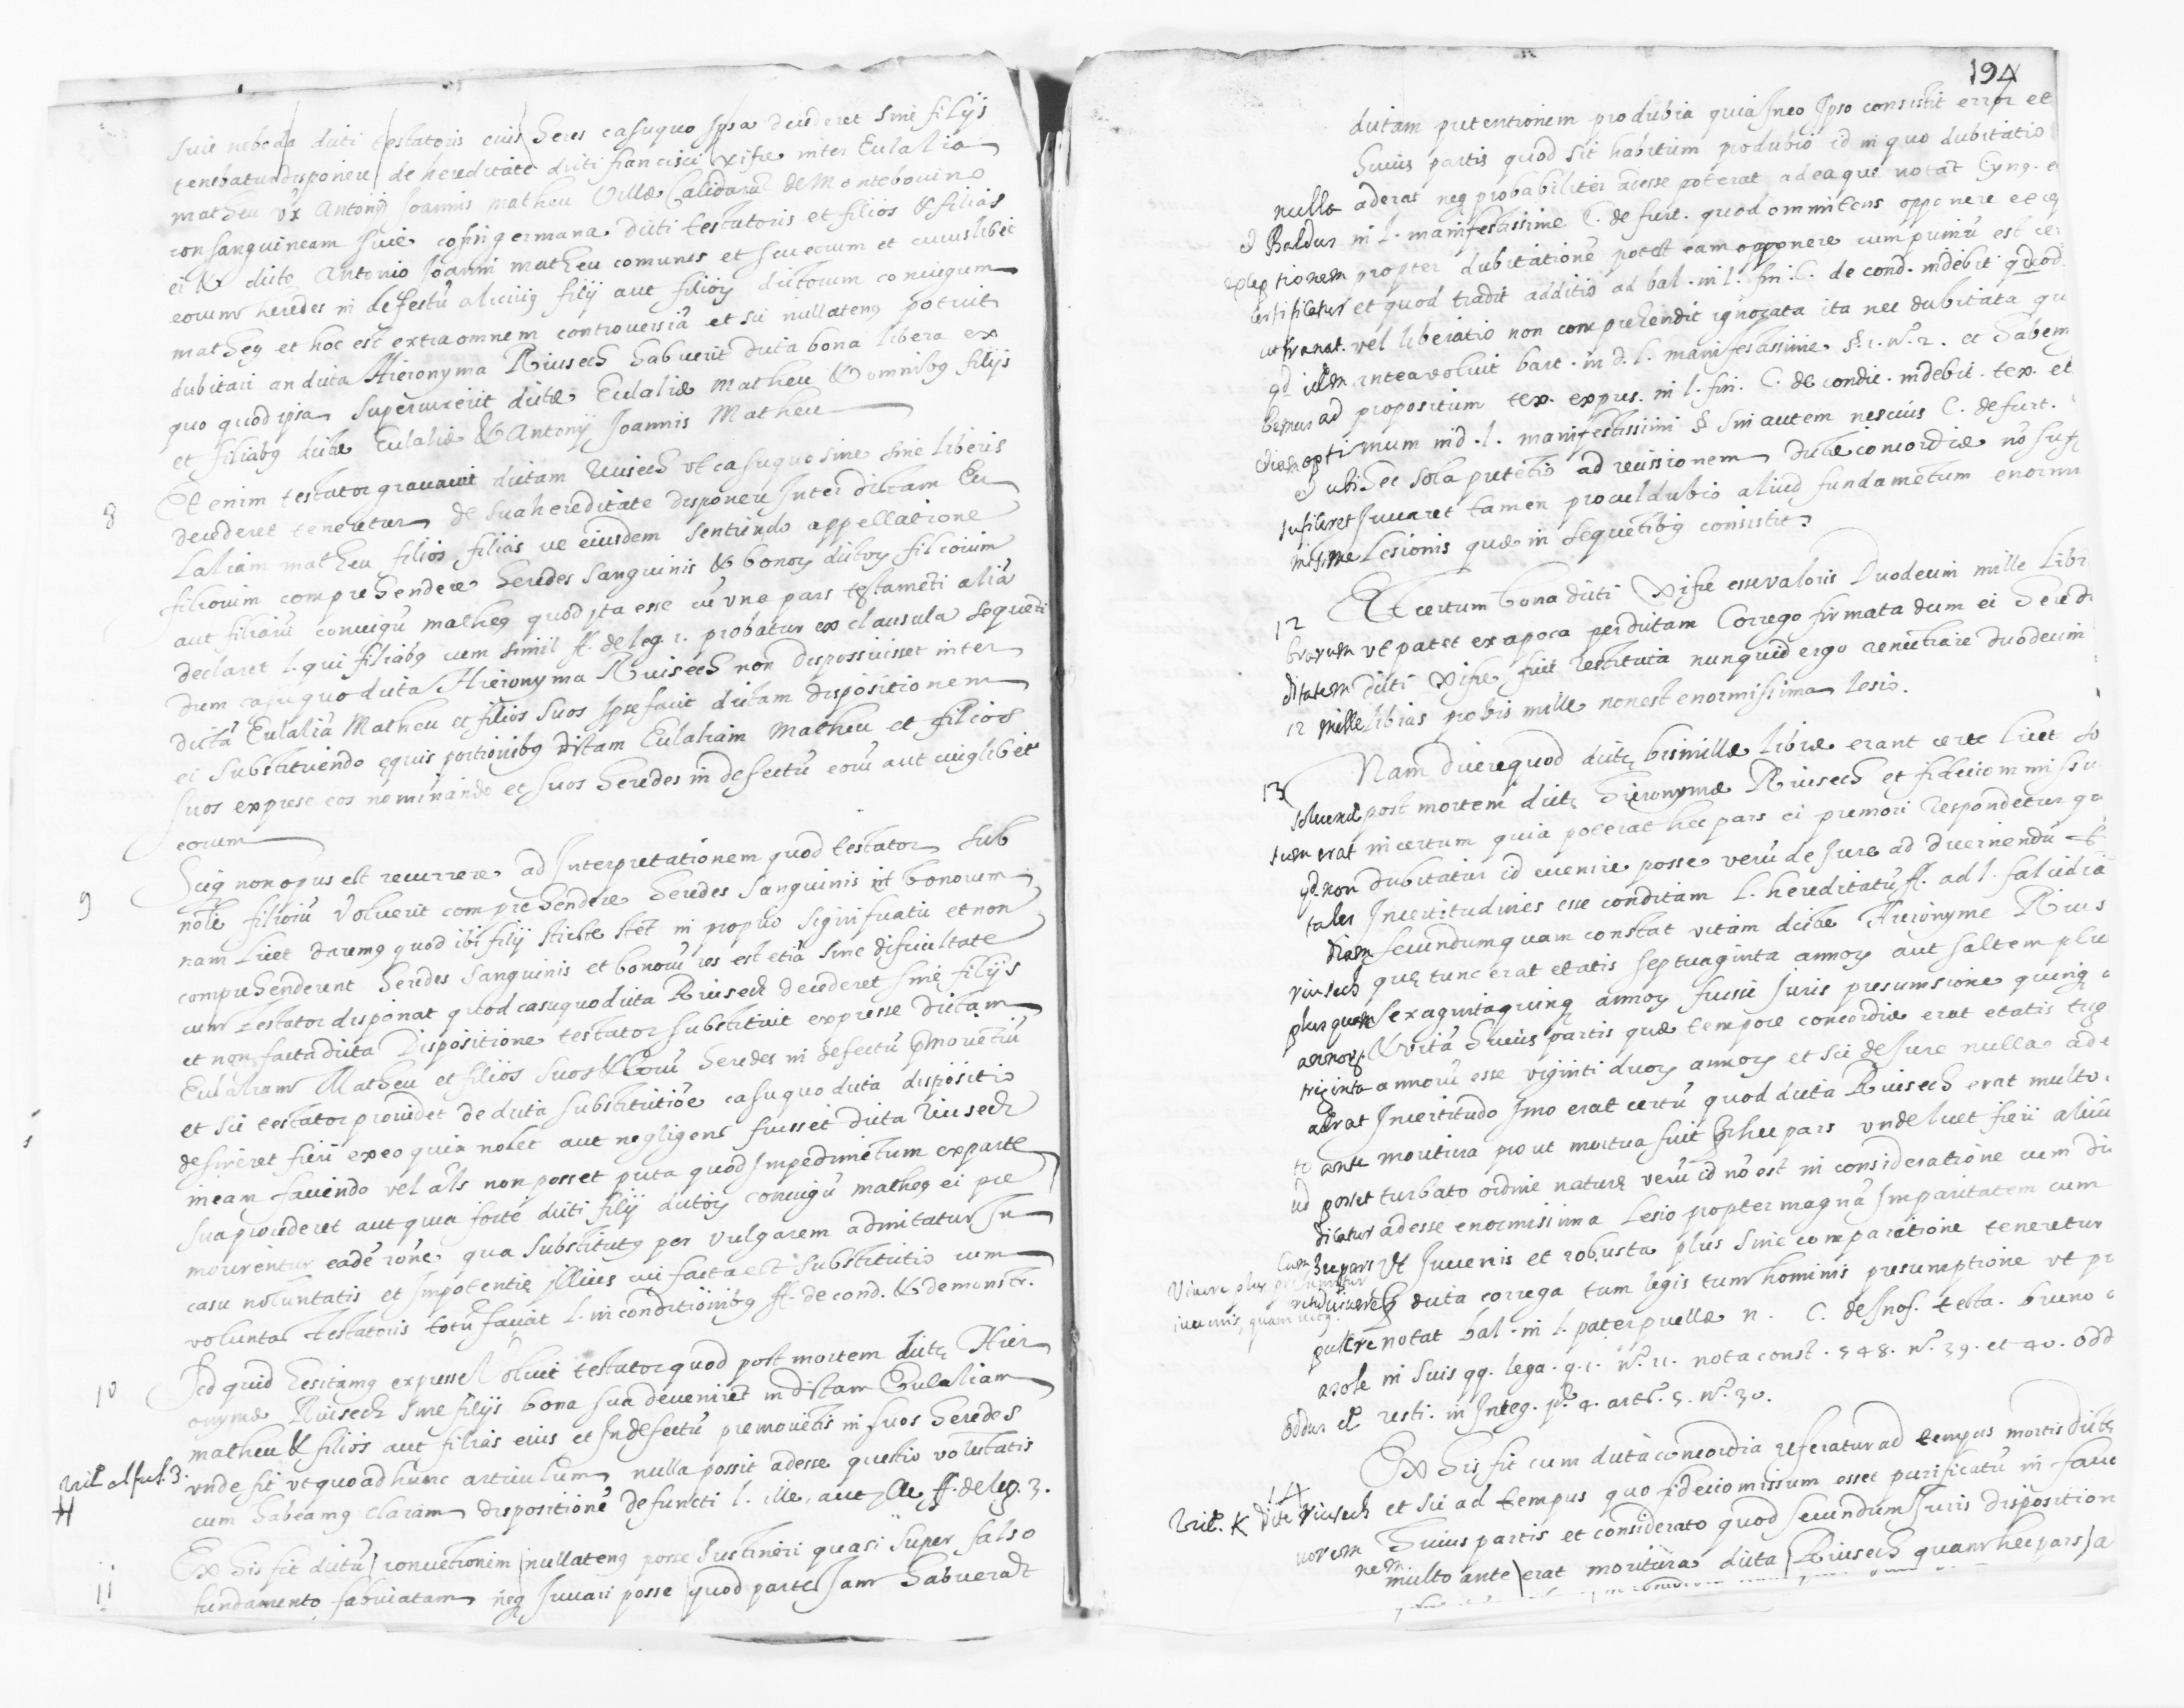 suie neboda dicti testatoris cuius heres casuquo ipsa decederet sine filijs
tenebatur disponere de hereditate dicti francisci xifre inter Eulalia
matheu ux Antonij Joannis matheu Villæ Calidarū de Montebovino
consanguineam suie cosingermana dicti testatoris et filios & filias
ei & dicto Antonio Joanni matheu comunes et seu eorum et cuiuslibet
eorum heredes in defectū alicuiq filij aut filioꝝ dictorum coniugum
matheꝫ et hoc est extra omnem controversiā et sic nullatenꝫ potuit
dubitari an dicta Hieronyma Riusech habuerit dicta bona libera ex
quo quod ipsa supervixerit dictæ Eulaliæ Matheu & omnibꝫ filijs
et filiabꝫ dictæ Eulaliæ & Antonij Joannis Matheu
8 Et enim testator gravavit dictam Riusech ut casuquo sine sine liberis
decederet teneretur de sua hereditate disponere Inter dictam Eu
laliam matheu filios, filias ve eiusdem sentiendo appellatione
filiorum comprehendere heredes sanguinis & bonoꝝ dictoꝝ filiorum
aut filiarū coniugū matheꝫ quod ita esse cū una pars testamēti aliā
declaret l. qui filiabꝫ cum simil ff. de leg. 1. probatur ex clausula sequeti
dum casuquo dicta Hieronyma Riusech non disposuisset inter
dictā Eulaliā Matheu et filios suos Ipse facit dictam dispositionem
ei substituendo equis portionibꝫ dictam Eulaliam Matheu et filios
suos exprese eos nominando et suos heredes in defectū eorū aut cuiqlibet
eorum
9 Sicq non opus est recurrere ad Interpretationem quod testator sub
noīe filiorū voluerit comprehendere heredes sanguinis et bonorum
nam licet daremꝫ quod ibi filij stricte stēt in proprio significatu et non
comprehenderent heredes sanguinis et bonorū res est etiā sine dificultate
cum testator disponat quod casuquo dicta Riusech decederet sine filijs
et non facta dicta Dispositione testator substituit expresse dictam
Eulaliam Matheu et filios suos & eorū heredes in defectū p̄morietiū
et sic testator providet de dicta substitutioē casuquo dicta dispositio
desineret fieri ex eo quia nolet aut negligens fuisset dicta Riusech
in eam faciendo vel al̄s non posset puta quod Impedimētum ex parte
sua provideret aut quia forte dicti filij dictoꝝ coniugū matheꝫ ei pre
morirentur eadē rōne qua substitutꝫ per vulgarem admitatur In
casu noluntatis et Impotentie illius cui facta est substitutio cum
voluntas testatoris totū faciat l. in conditionibꝫ ff. de cond. & demonstr.
10 Sed quid hesitamꝫ expresse voluit testator quod post mortem dictę Hier
onymæ Riusech sine filijs bona sua devenirēt in dictam Eulaliam
matheu & filios aut filias eius et In defectū premorietis in suos heredes
unde fit ut quoad hunc articulum nulla possit adesse questio volūtatis
cum habeamꝫ claram dispositionē defuncti l. ille, aut ille ff. de leg. 3.
H
11 Ex his fit dictū convētionem nullatenꝫ posse sustineri quasi super falso
fundamento fabricatam neq Juvari posse quod parte Jam habuerat
194
dictam pretentionem pro dubia quia In eo Ipso consistit error et
huius partis quod sit habitum pro dubio id in quo dubitatio
nulla aderat neq probabiliter adesse poterat ad ea que notat Cyng. et
Baldus in l. manifestissime C. de furt. quod ommitens opponere excep
exceptionem propter dubitationē potest eam opponere cum primū est cer
certificatur et quod tradit additio ad bal. in l. fin. C. de cond. indebit quod
vel liberatio non comprehendit ignorata ita nec dubitata qu
qd idem antea voluit bart. in d. l. manifestissime §. 1. nº. 2. et habem
bemus ad propositum tex. expres. in l. fin. C. de condic. indebit. tex. et
optimum in d. l. manifestissimi § sin autem nescius C. de furt.
Et ubi hec sola pretētio ad recissionem dictæ concordiæ nō sufi
suficeret Juvaret tamen proculdubio aliud fundamētum enormi
missime Lesionis quæ in sequētibꝫ consistit.
12 Et certum bona dicti Xifre esse valoris Duodecim mille Libr
brarum ut patet ex apoca per dictam Correga firmata dum ei heredi
ditatem dicti Xifre fuit restituta nunquid ergo renūtiare duodecim
12 mille libras pro bis mille non est enormissima lesio.
13 Nam dicere quod dictę bis mille libræ erant certe licet so
solvend post mortem dictę hieronymæ Riusech et fideicommissu
tum erat incertum quia poterat hec pars ei premori respondetur qd
qd. non dubitatur id evenire posse verū de Jure ad dirimendū
tales Incertitudines esse conditam l. hereditatū ff. ad l. falcidia
diam secundum quam constat vitam dictæ Hieronyme Rius
riusech quę tunc erat etatis septuaginta annoꝝ aut saltem plu
plus quam sexagintaquinq annoꝝ fuisse Juris presumsione quinq
annoꝝ & vitā huius partis quæ tempore concordiæ erat etatis trig
triginta annorū esse viginti duoꝝ annoꝝ et sic de Jure nulla ade
aderat Incertitudo Imo erat certū quod dicta Riusech erat multo
to ante moritura prout mortua fuit quam hec pars unde licet fieri aliud
ud posset turbato ordine naturę verū id nō est in consideratione cum di
dicatur adesse enormissima Lesio propter magnā Imparitatem cum
cum hec pars ut Juvenis et robusta plus sine comparatione teneretur
Vivere plus presumitur
iuvenis, quam vetꝫ.
dicta correga tum legis tum hominis presumptione ut pr
notat bal. in l. pater puellæ n. C. de Inof. testa. bruno
asole in suis qq. lega. q. 1. nº. 11. nota const. 348. nº. 39. et 40. odd
oddus de resti. in Integ. p. 4. artº. 5. nº. 30.
14 Ex his fit cum dicta concordia referatur ad tempus mortis dictę
dicte riusech et sic ad tempus quo fideicomissum esset purificatū in favo
vorem huius partis et considerato quod secundum Juris disposition
nem multo ante erat moritura dicta Riusech quam hec pars a